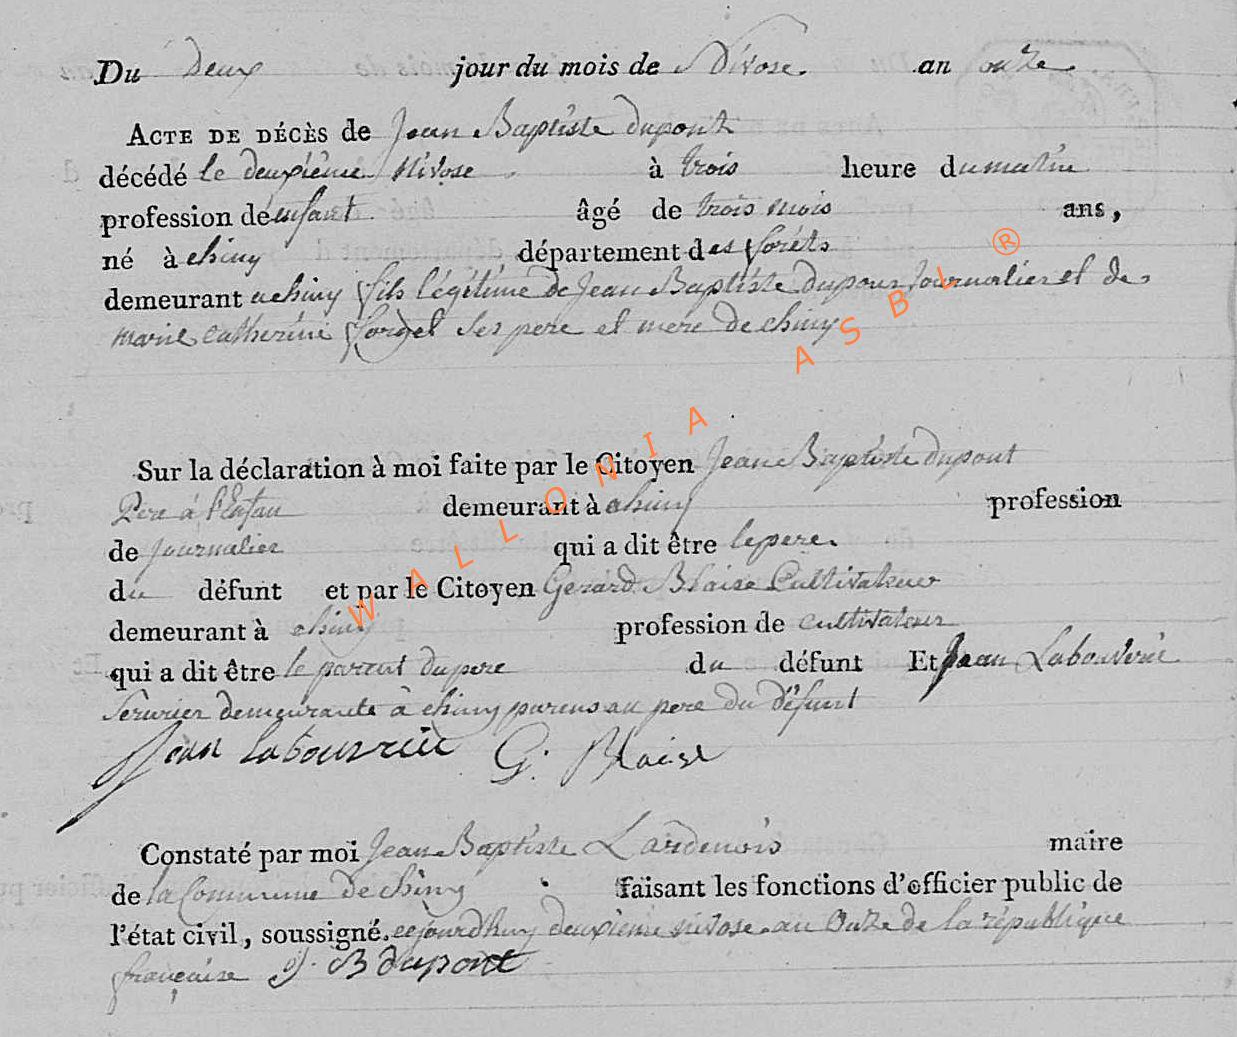 Du Deux jour du mois de Nivose. an onze
ACTE DE DÉCÈS de Jean Baptiste dupont
décédé le deuxiême Nivose à trois heure du matin
profession de enfant âgé de trois mois ans,
né à chiny département des forêts
demeurant a chiny fils légitime de Jean Baptiste dupont Journalier et de
marie catherine forget Ses pere et mere de chiny
Sur la déclaration à moi faite par le Citoyen Jean Baptiste dupont
Pere á l'Enfan demeurant à chiny profession
de journalier qui a dit être le pere
du défunt et par le Citoyen Gerard Blaise Cultivateur
demeurant à chiny profession de cultivateur
qui a dit être le parent du pere du défunt Et Jean Labouverie
Serurier demeurants à chiny parens au pere du Défunt
Jean labouverie G. Blaise
Constaté par moi Jean Baptiste Lardenois maire
de la Commune de chiny faisant les fonctions d'officier public de
l'état civil, soussigné. cejourdhuy deuxieme nivose an Onze de la république
française J. B dupont
WALLONIA ASBL ®